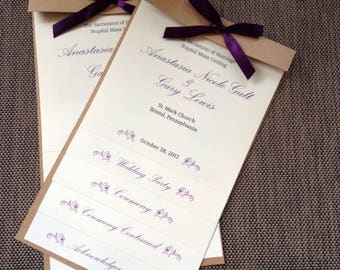 Sacrament of Marriage
Nuptial Mass Uniting
Anastasia Nicole Galt
&
Gary Lewis
St. Mark Church
Bristol, Pennsylvania
October 28, 2017
Wedding Party
Ceremony
Ceremony Continued
Our Sacrament of
Nuptial Mass
Anastasia
Ga